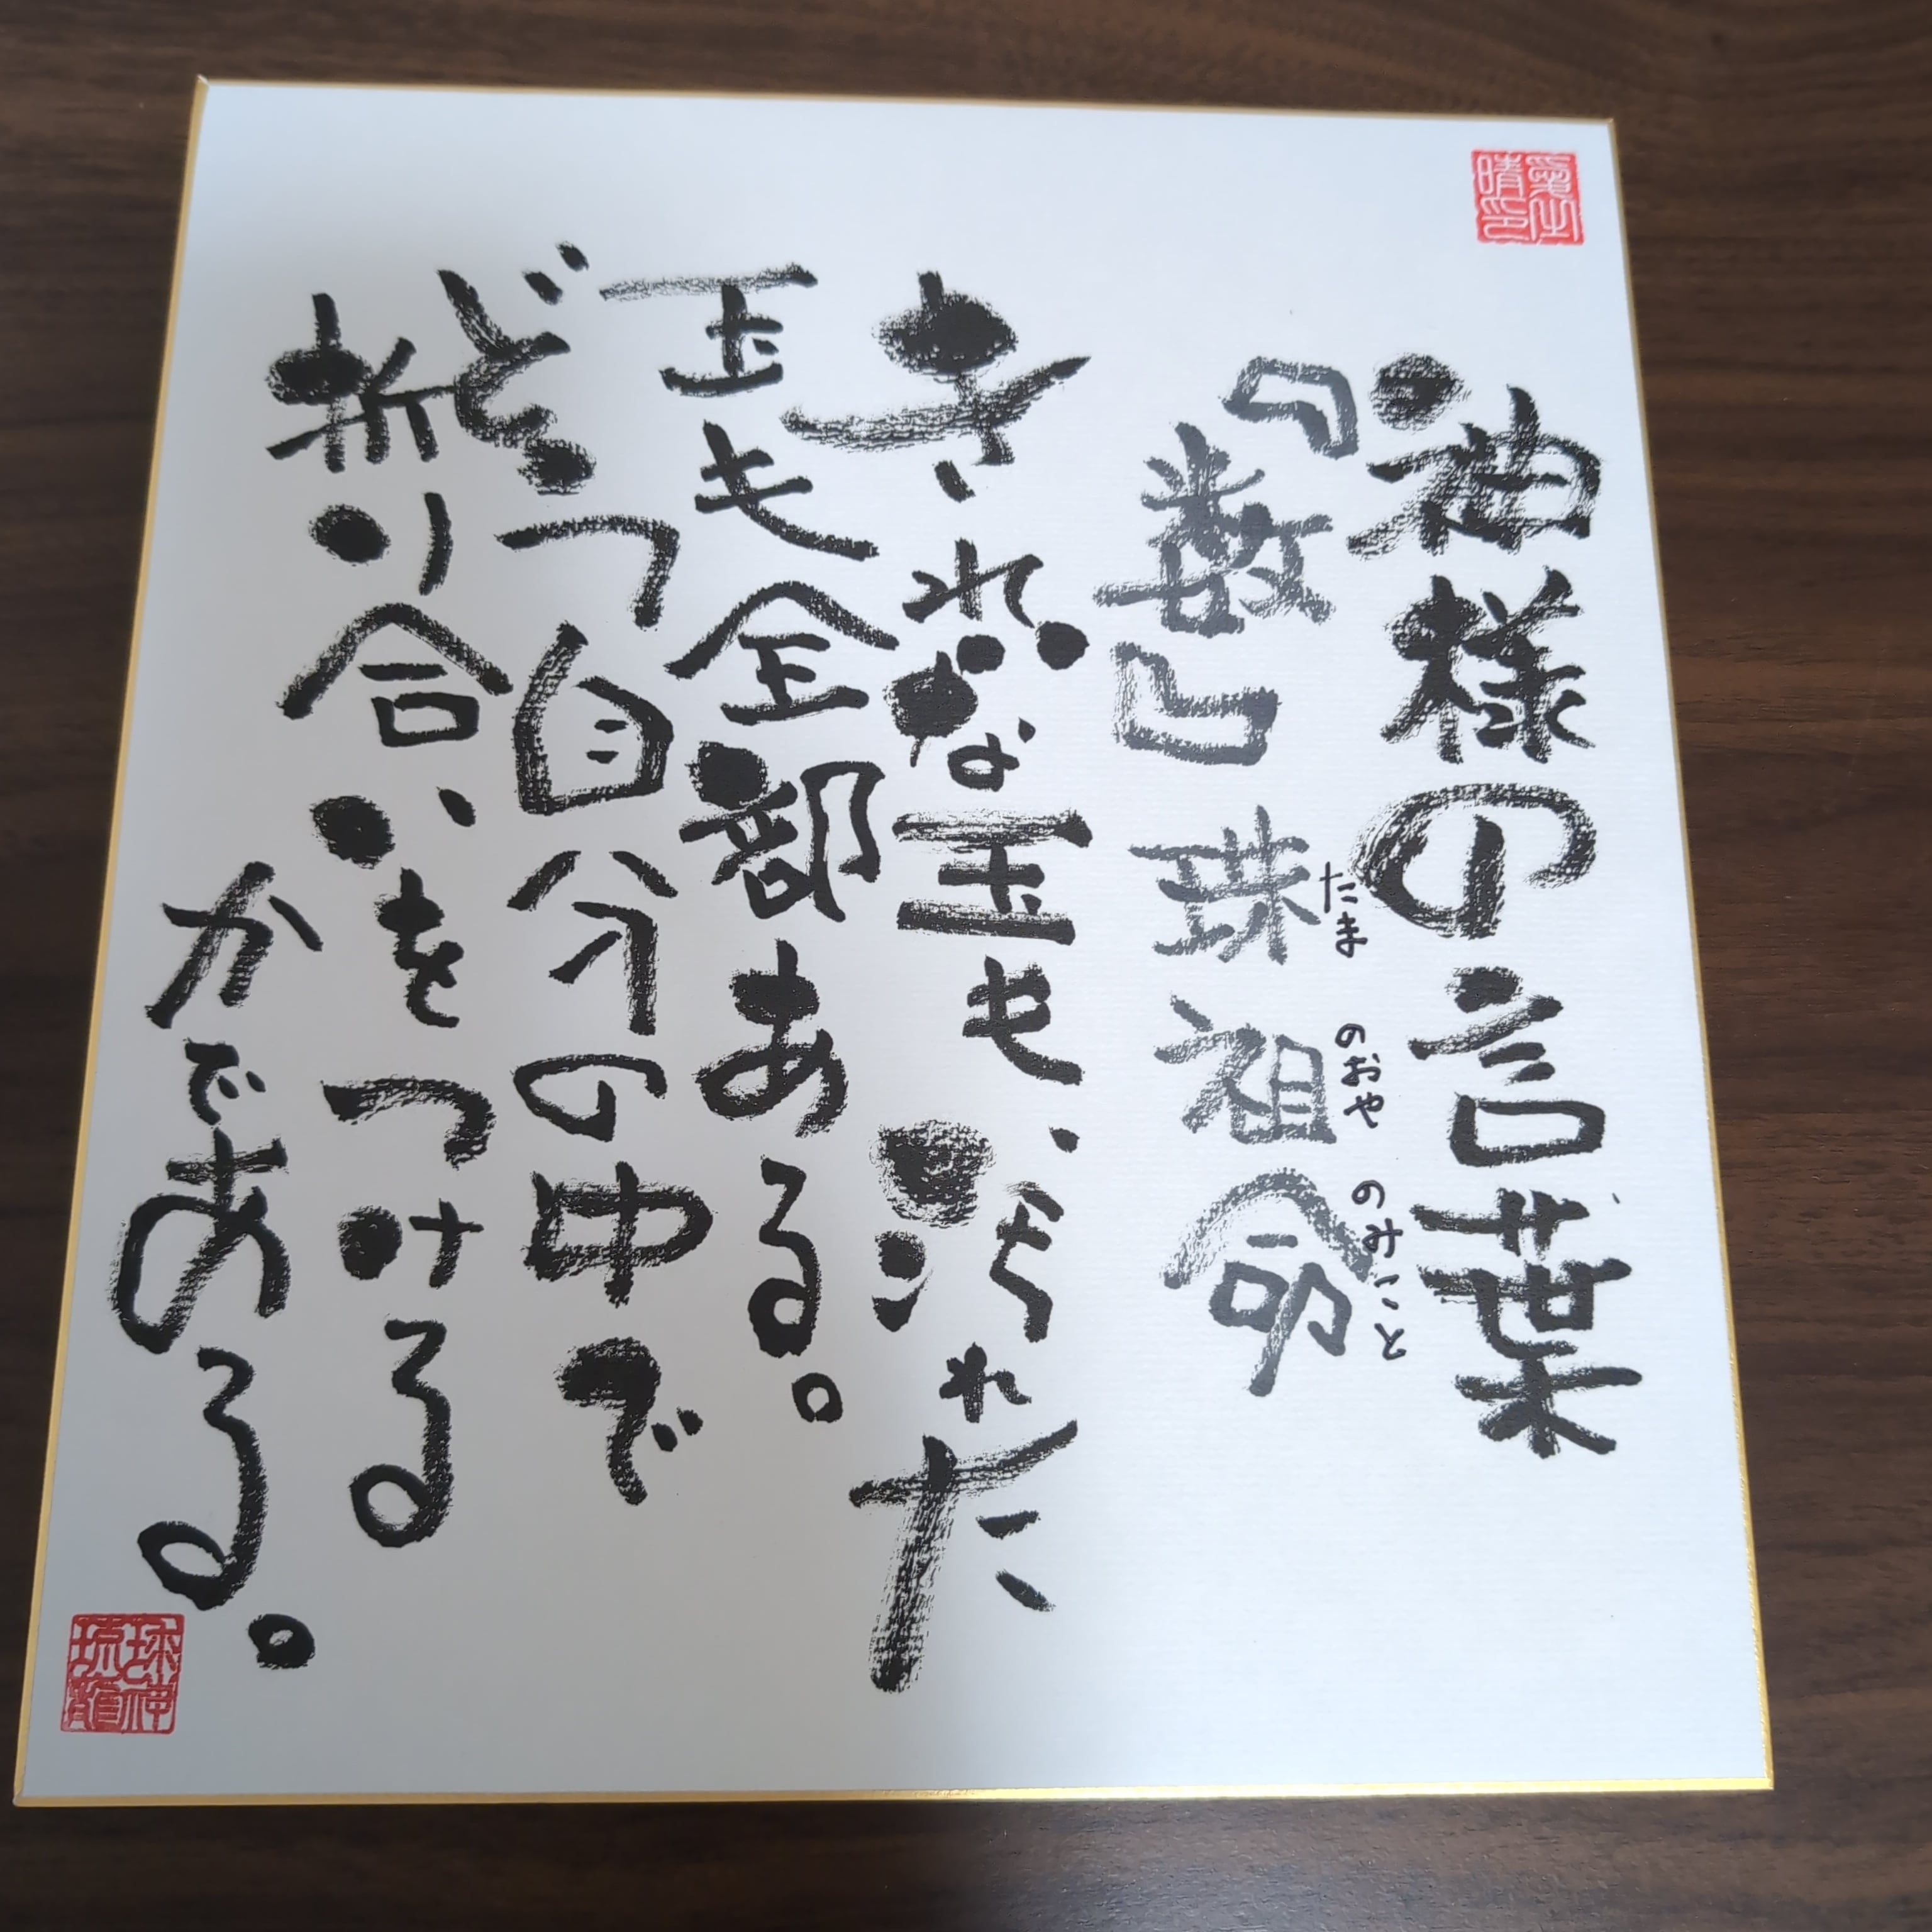 神様の言葉
『数』珠祖命
たまのおやのみこと
きれいな玉も、汚れた
玉も全部ある。
どう自分の中で
折り合いをつける
かである。
琉球
龍神